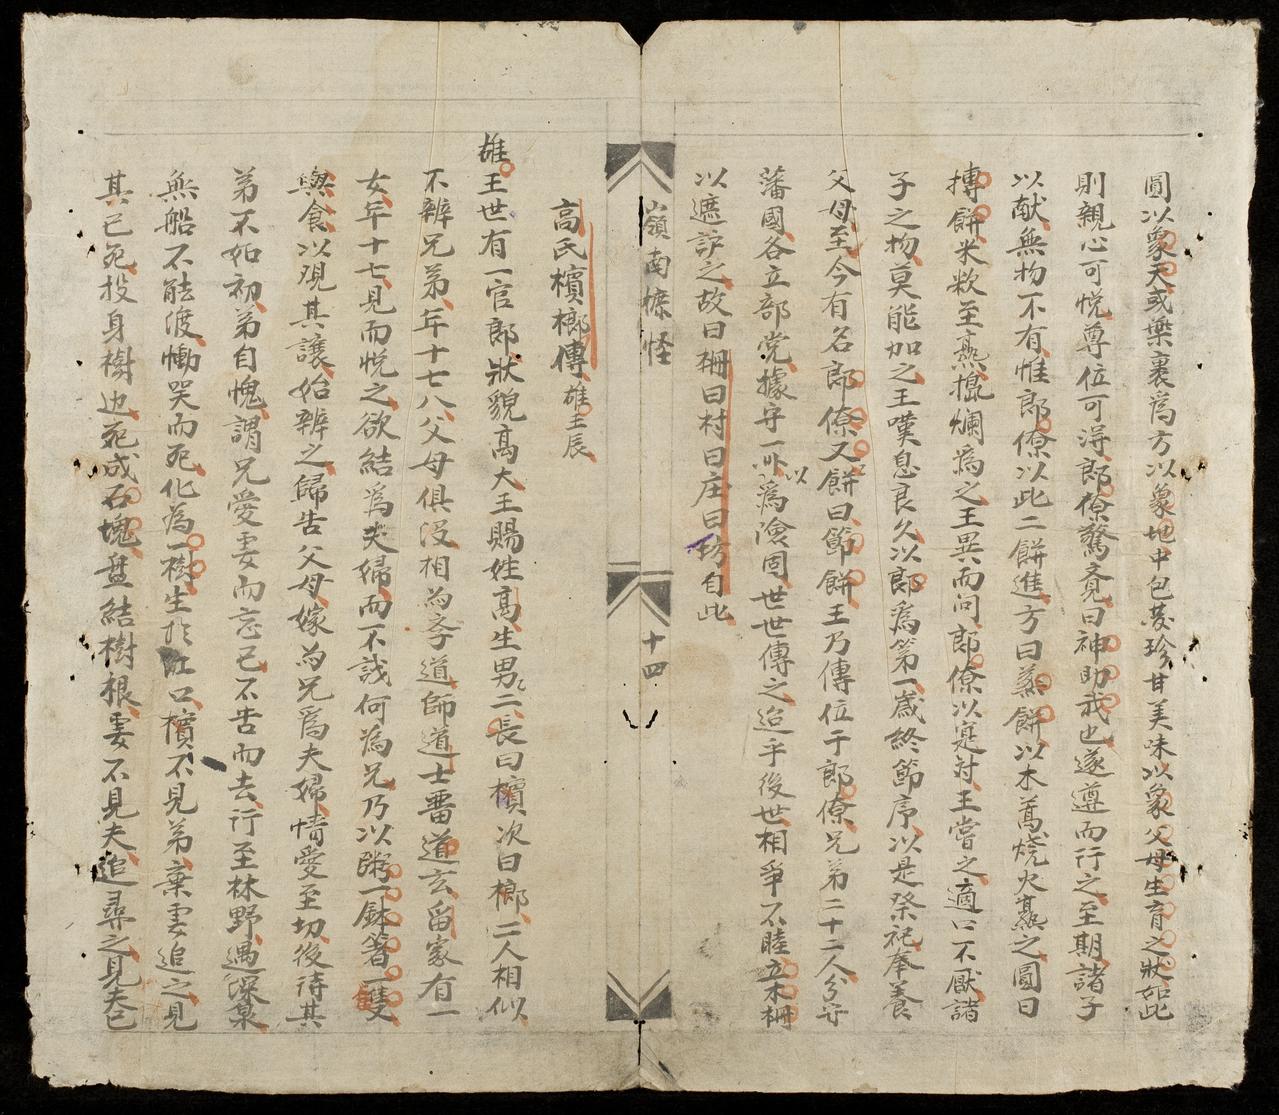 圓以象天或樂裹爲方以象地中包茇珍甘美味以象父母生育之狀如此
則親心可悅尊位可淂郎僚驚覔曰神助我也遂遵而行之至期諸子
以献無物不有惟郎僚以此二餅進方曰蒸餅以木萬燒火熹之圓曰
摶餅米炊至熹搵爛爲之王異而问郎僚以寔対王嘗之適口不厭諸
子之物莫能加之王嘆息良久以郎爲第一歲終節序以是祭祀奉養
父母至今有名郎僚又餅曰節餅王乃傳位于郎僚兄弟二十二人分守
藩國各立部党據守一所以爲險固世世傳之迨乎後世相爭不睦立木柵
以遮護之故曰柵曰村曰庄曰坊自此
嶺南摭怪
十四
高氏檳榔傳雄王辰
雄王世有一官郎狀貌高大王賜姓高生男二長曰檳次曰榔二人相似
不辨兄弟年十七八父母俱没相为斈道師道士畱道玄畱家有一
女年十七見而悅之欲結爲夫婦而不識何為兄乃以粥一鉢箸一雙
與食以观其讓始辨之歸告父母嫁为兄爲夫婦情愛至切後待其
弟不如初弟自愧謂兄愛妻而忘己不告而去行至林野遇深泉
無船不能渡慟哭而死化為一樹生扵江口檳不見弟棄妻追之見
其已死投身樹边死成石塊盘結樹根妻不見夫追尋之見夫已